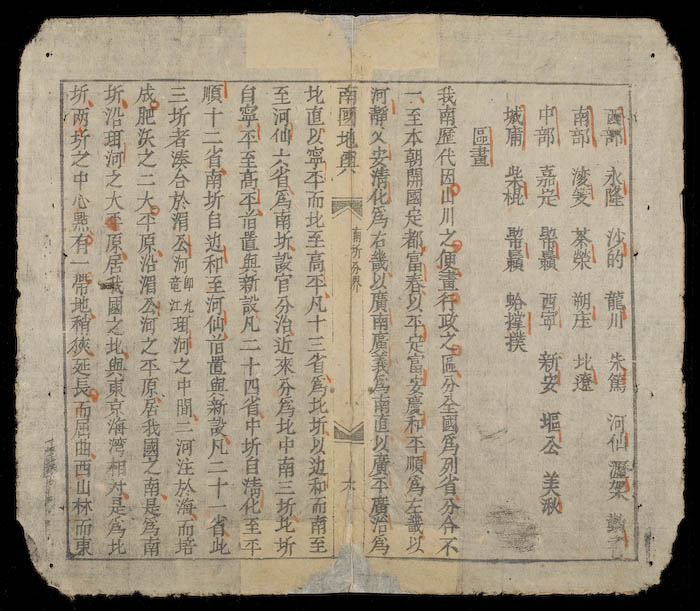 西部 永隆 沙的 龍川 朱篤 河仙
南部 茶榮 朔庄 北遼
中部 嘉定 西寧 新安 美湫
城庸
區畫
我南歷代因山川之便畫行政之區分全國爲列省分合不
一至本朝開國定都富春以平定富安慶和平順爲左畿以
河靜乂安清化爲右畿以廣南廣義爲南直以廣平廣治爲
南國地輿
南圻分界
六
北直以寧平而北至高平凡十三省爲北圻以边和而南至
至河仙六省爲南圻設官分治近來分爲北中南三圻北圻
自寧平至高平旧置與新設凡二十四省中圻自清化至平
順十二省南圻自边和至河仙旧置與新設凡二十一省此
三圻者湊合於湄公河即九竜江珥河之中間二河注於海而培
成肥沃之二大平原沿湄公河之平原居我國之南是爲南
圻沿珥河之大平原居我國之北與東京海湾相对是爲北
圻两圻之中心㸃有一帶地稍狹延長而屈曲西山林而東